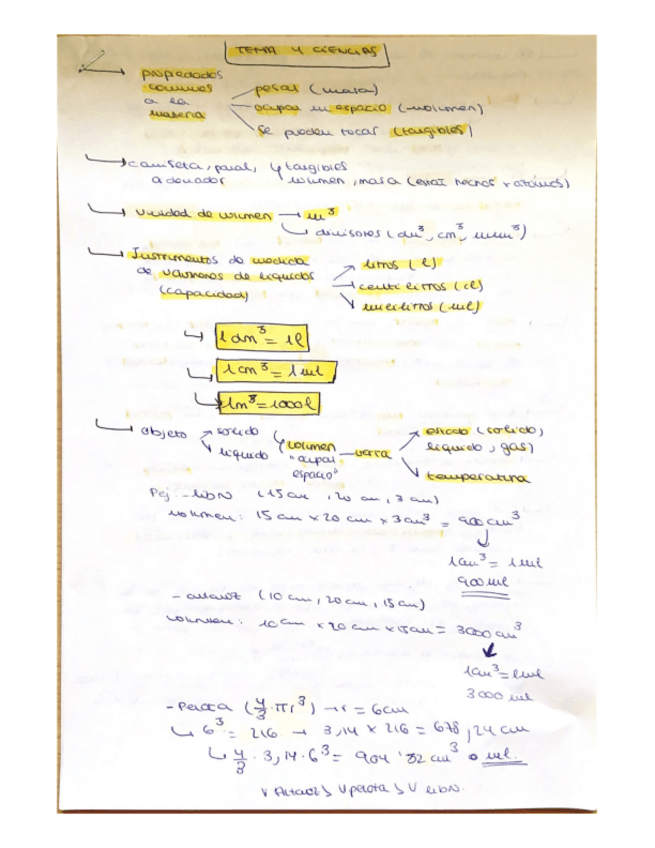 TEMA 4 CIENCIAS
propiedades comunes a la materia
pesar (masa)
ocupar un espacio (volumen)
se pueden tocar (tangibles)
camiseta, panal, tangibles
volumen, masa (están hechos x átomos)
Unidad de volumen → m³
divisores (dm³, cm³, mm³)
Instrumentos de medida
de volúmenes de líquidos
(capacidad)
litros (l)
centilitros (cl)
mililitros (ml)
1 dm³ = 1l
1 cm³ = 1 ml
1m³ = 1000l
objeto
sólido
líquido
volumen
"ocupar
espacio"
varía
estado (sólido,
líquido, gas)
temperatura
Pej - libro (15 cm, 20 cm, 3 cm)
volumen: 15 cm x 20 cm x 3 cm³ = 900 cm³
1 cm³ = 1 ml
900 ml
(10 cm, 20 cm, 15 cm)
volumen: 10 cm x 20 cm x 15 cm = 3000 cm³
1 cm³ = 1 ml
3000 ml
- Pelota (4/3 · πr³) → r = 6 cm
6³ = 216 → 3,14 x 216 = 678,24 cm
4/3 · 3,14 · 6³ = 904'32 cm³ o ml.
V pelota > V libro